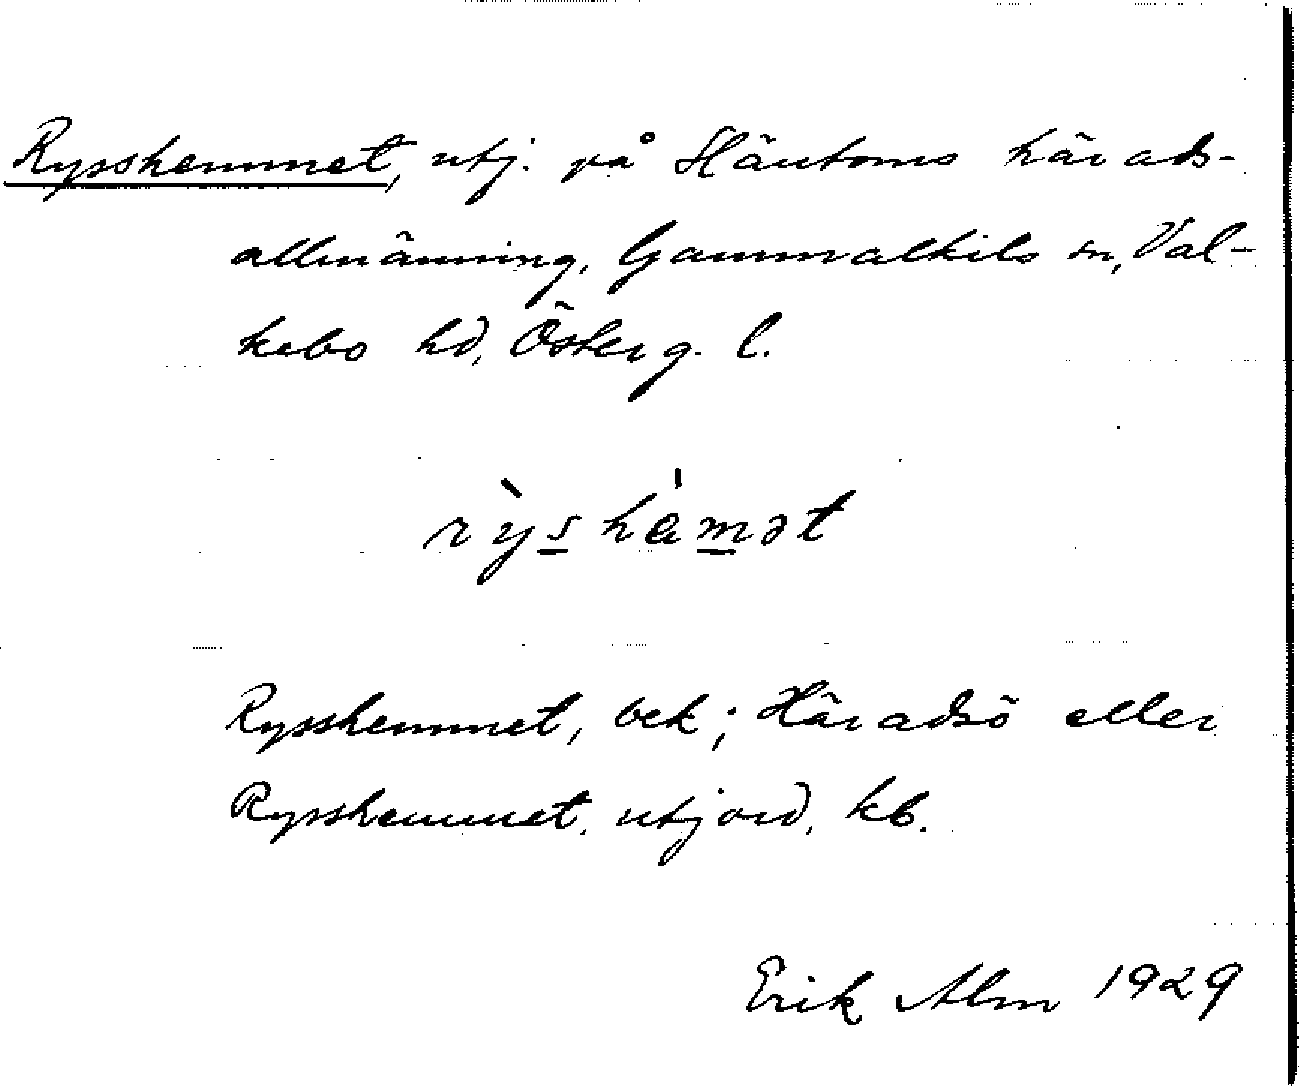 Rysshemmet, utj. på Häutoms härads-
allmänning, Gammalkils sn, Val-
kebo hd, Österg. l.
rỳshèmət
Rysshemmet, bek; Häradsö eller
Rysshemmet, utjord, kb.
Erik Alm 1929